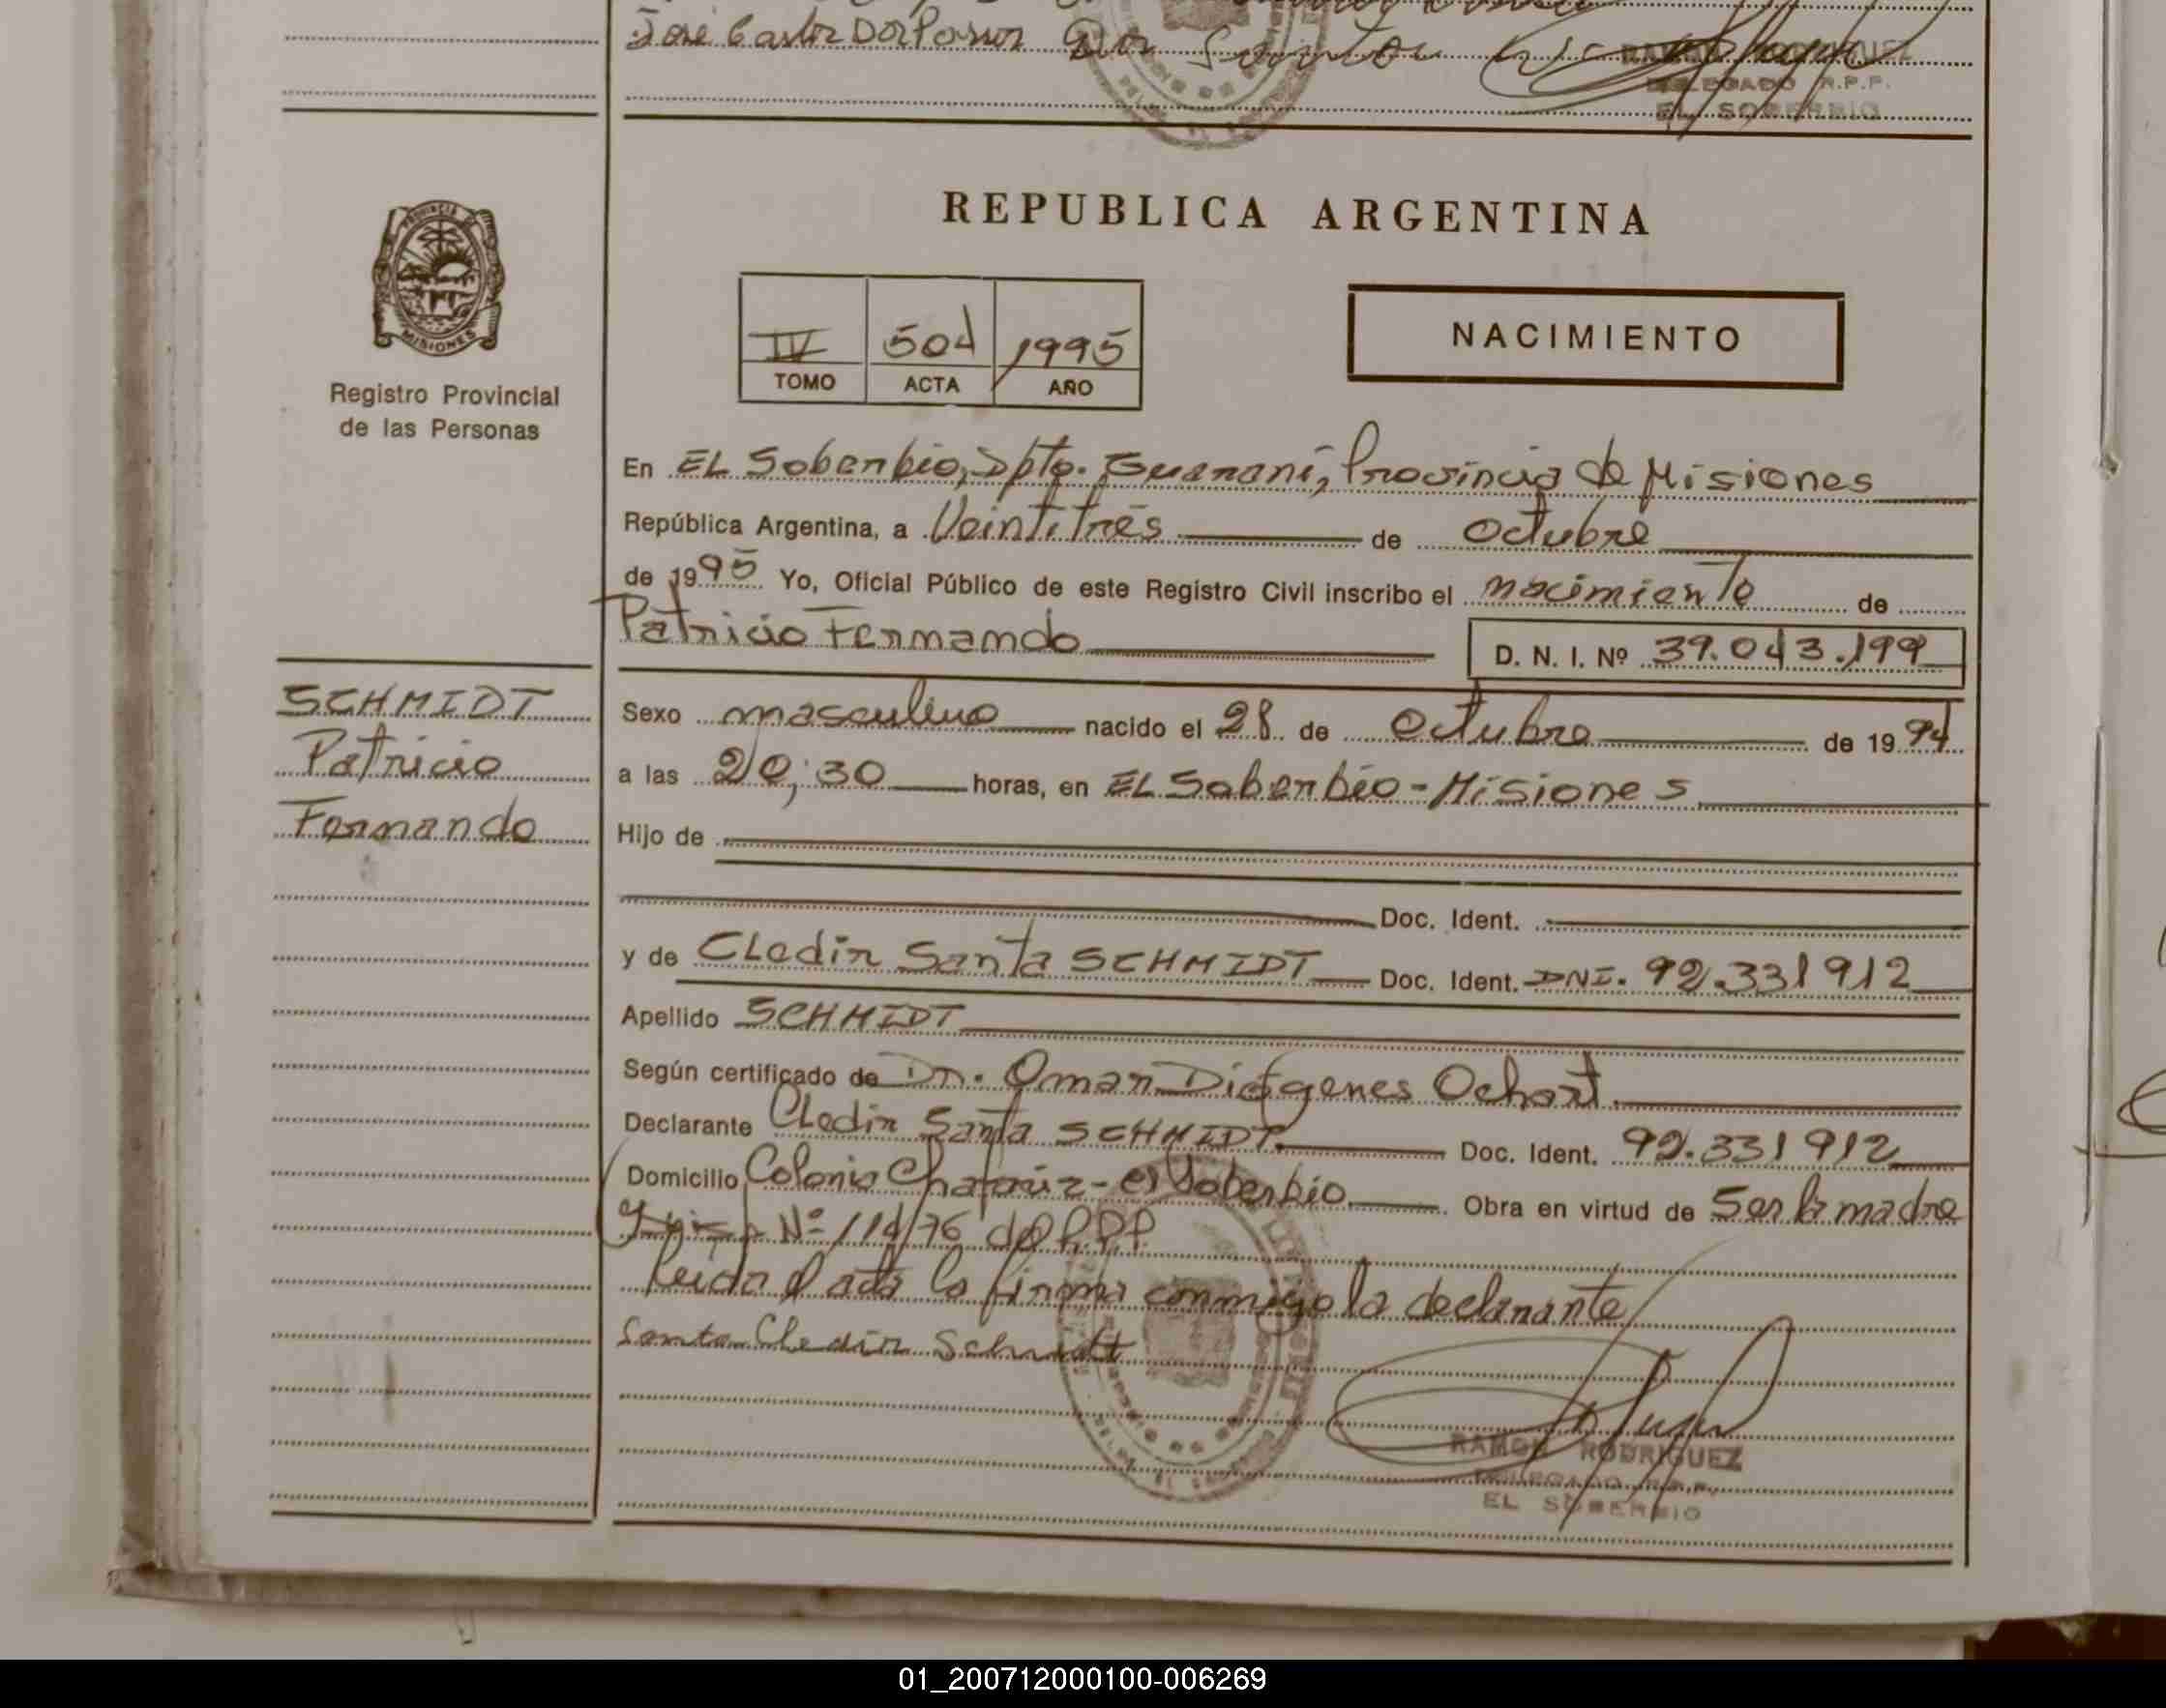 José Carlos Dal
DELEGADO R.P.P.
EL SOBERBIO
REPUBLICA ARGENTINA
PROVINCIA DE
MISIONES
Registro Provincial
de las Personas
IV 504 1995
TOMO ACTA AÑO
NACIMIENTO
En EL Soberbio, Dpto. Guarani, Provincia de Misiones
República Argentina, a Veintitrés de octubre
de 1995 Yo, Oficial Público de este Registro Civil inscribo el nacimiento de
Patricio Fernando D. N. I. Nº 39.043.199
SCHMIDT
Patricio
Fernando
Sexo masculino nacido el 28 de Octubre de 1994
a las 20;30 horas, en EL Soberbio - Misiones
Hijo de
Doc. Ident.
y de CLedir Santa SCHMIDT Doc. Ident. DNI. 92.331912
Apellido SCHMIDT
Según certificado de Dr. Omar Diógenes
Declarante CLedir Santa SCHMIDT Doc. Ident. 92.331912
Domicilio Colonia - el Soberbio Obra en virtud de Ser la madre
Nº 114/76 del R.P.P.
Leida el acta la firma conmigo la declarante
Santa Cledir Schmidt
RAMON RODRIGUEZ
DELEGADO R.P.P.
EL SOBERBIO
01_200712000100-006269